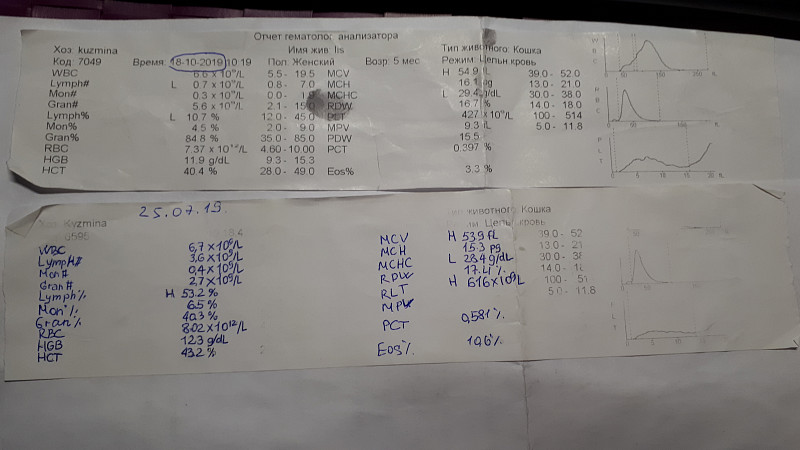 Отчет гематолог. анализатора
Хоз: kuzmina Имя жив. lis Тип животного: Кошка
Код: 7049 Время: 18-10-2019 10:19 Пол: Женский Возр: 5 мес Режим: Цельн.кровь
WBC 6.6 x 10⁹/L 5.5 - 19.5 MCV H 54.9 fL 39.0 - 52.0
Lymph# L 0.7 x 10⁹/L 0.8 - 7.0 MCH 16.1 pg 13.0 - 21.0
Mon# 0.3 x 10⁹/L 0.0 - MCHC L 29.4 g/dL 30.0 - 38.0
Gran# 5.6 x 10⁹/L 2.1 - 15.0 RDW 16.7 % 14.0 - 18.0
Lymph% L 10.7 % 12.0 - 45.0 PCT 427 x 10⁹/L 100 - 514
Mon% 4.5 % 2.0 - 9.0 MPV 9.3 fL 5.0 - 11.8
Gran% 84.8 % 35.0 - 85.0 PDW 15.5
RBC 7.37 x 10¹²/L 4.60 - 10.00 PCT 0.397 %
HGB 11.9 g/dL 9.3 - 15.3
HCT 40.4 % 28.0 - 49.0 Eos% 3.3 %
WBC
RBC
PLT
25.07.19.
Хоз: Kuzmina животного: Кошка
6595 Цельн.кровь
WBC 6,7 x 10⁹/L MCV H 53.9 fL 39.0 - 52
Lymph# 3,6 x 10⁹/L MCH 15.3 pg 13.0 - 21
Mon# 0,4 x 10⁹/L MCHC L 28.4 g/dL 30.0 - 38
Gran# 2,7 x 10⁹/L RDW 17.4 % 14.0 - 18
Lymph% H 53.2 % RLT H 616 x 10⁹/L 100 - 51
Mon% 6.5 % MPV 5.0 - 11.8
Gran% 40.3 %
RBC 8.02 x 10¹²/L PCT 0,581 %
HGB 12.3 g/dL
HCT 43.2 % Eos% 10,6 %